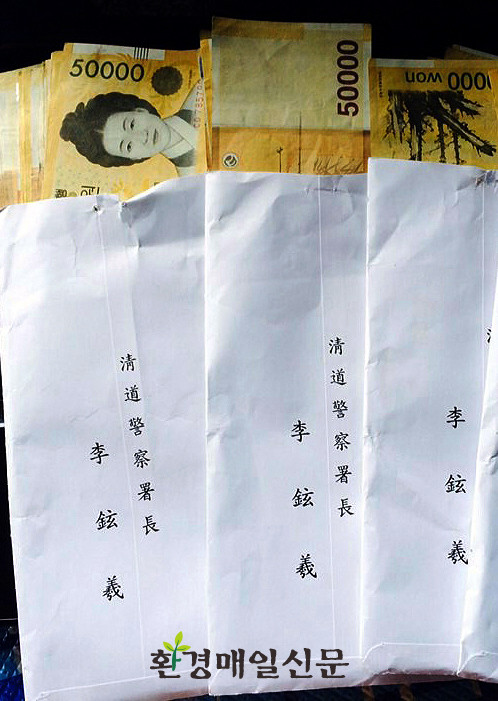 50000
50000
won
000
淸道警察署長
李鉉羲
淸道警察署長
李鉉羲
李鉉羲
환경매일신문